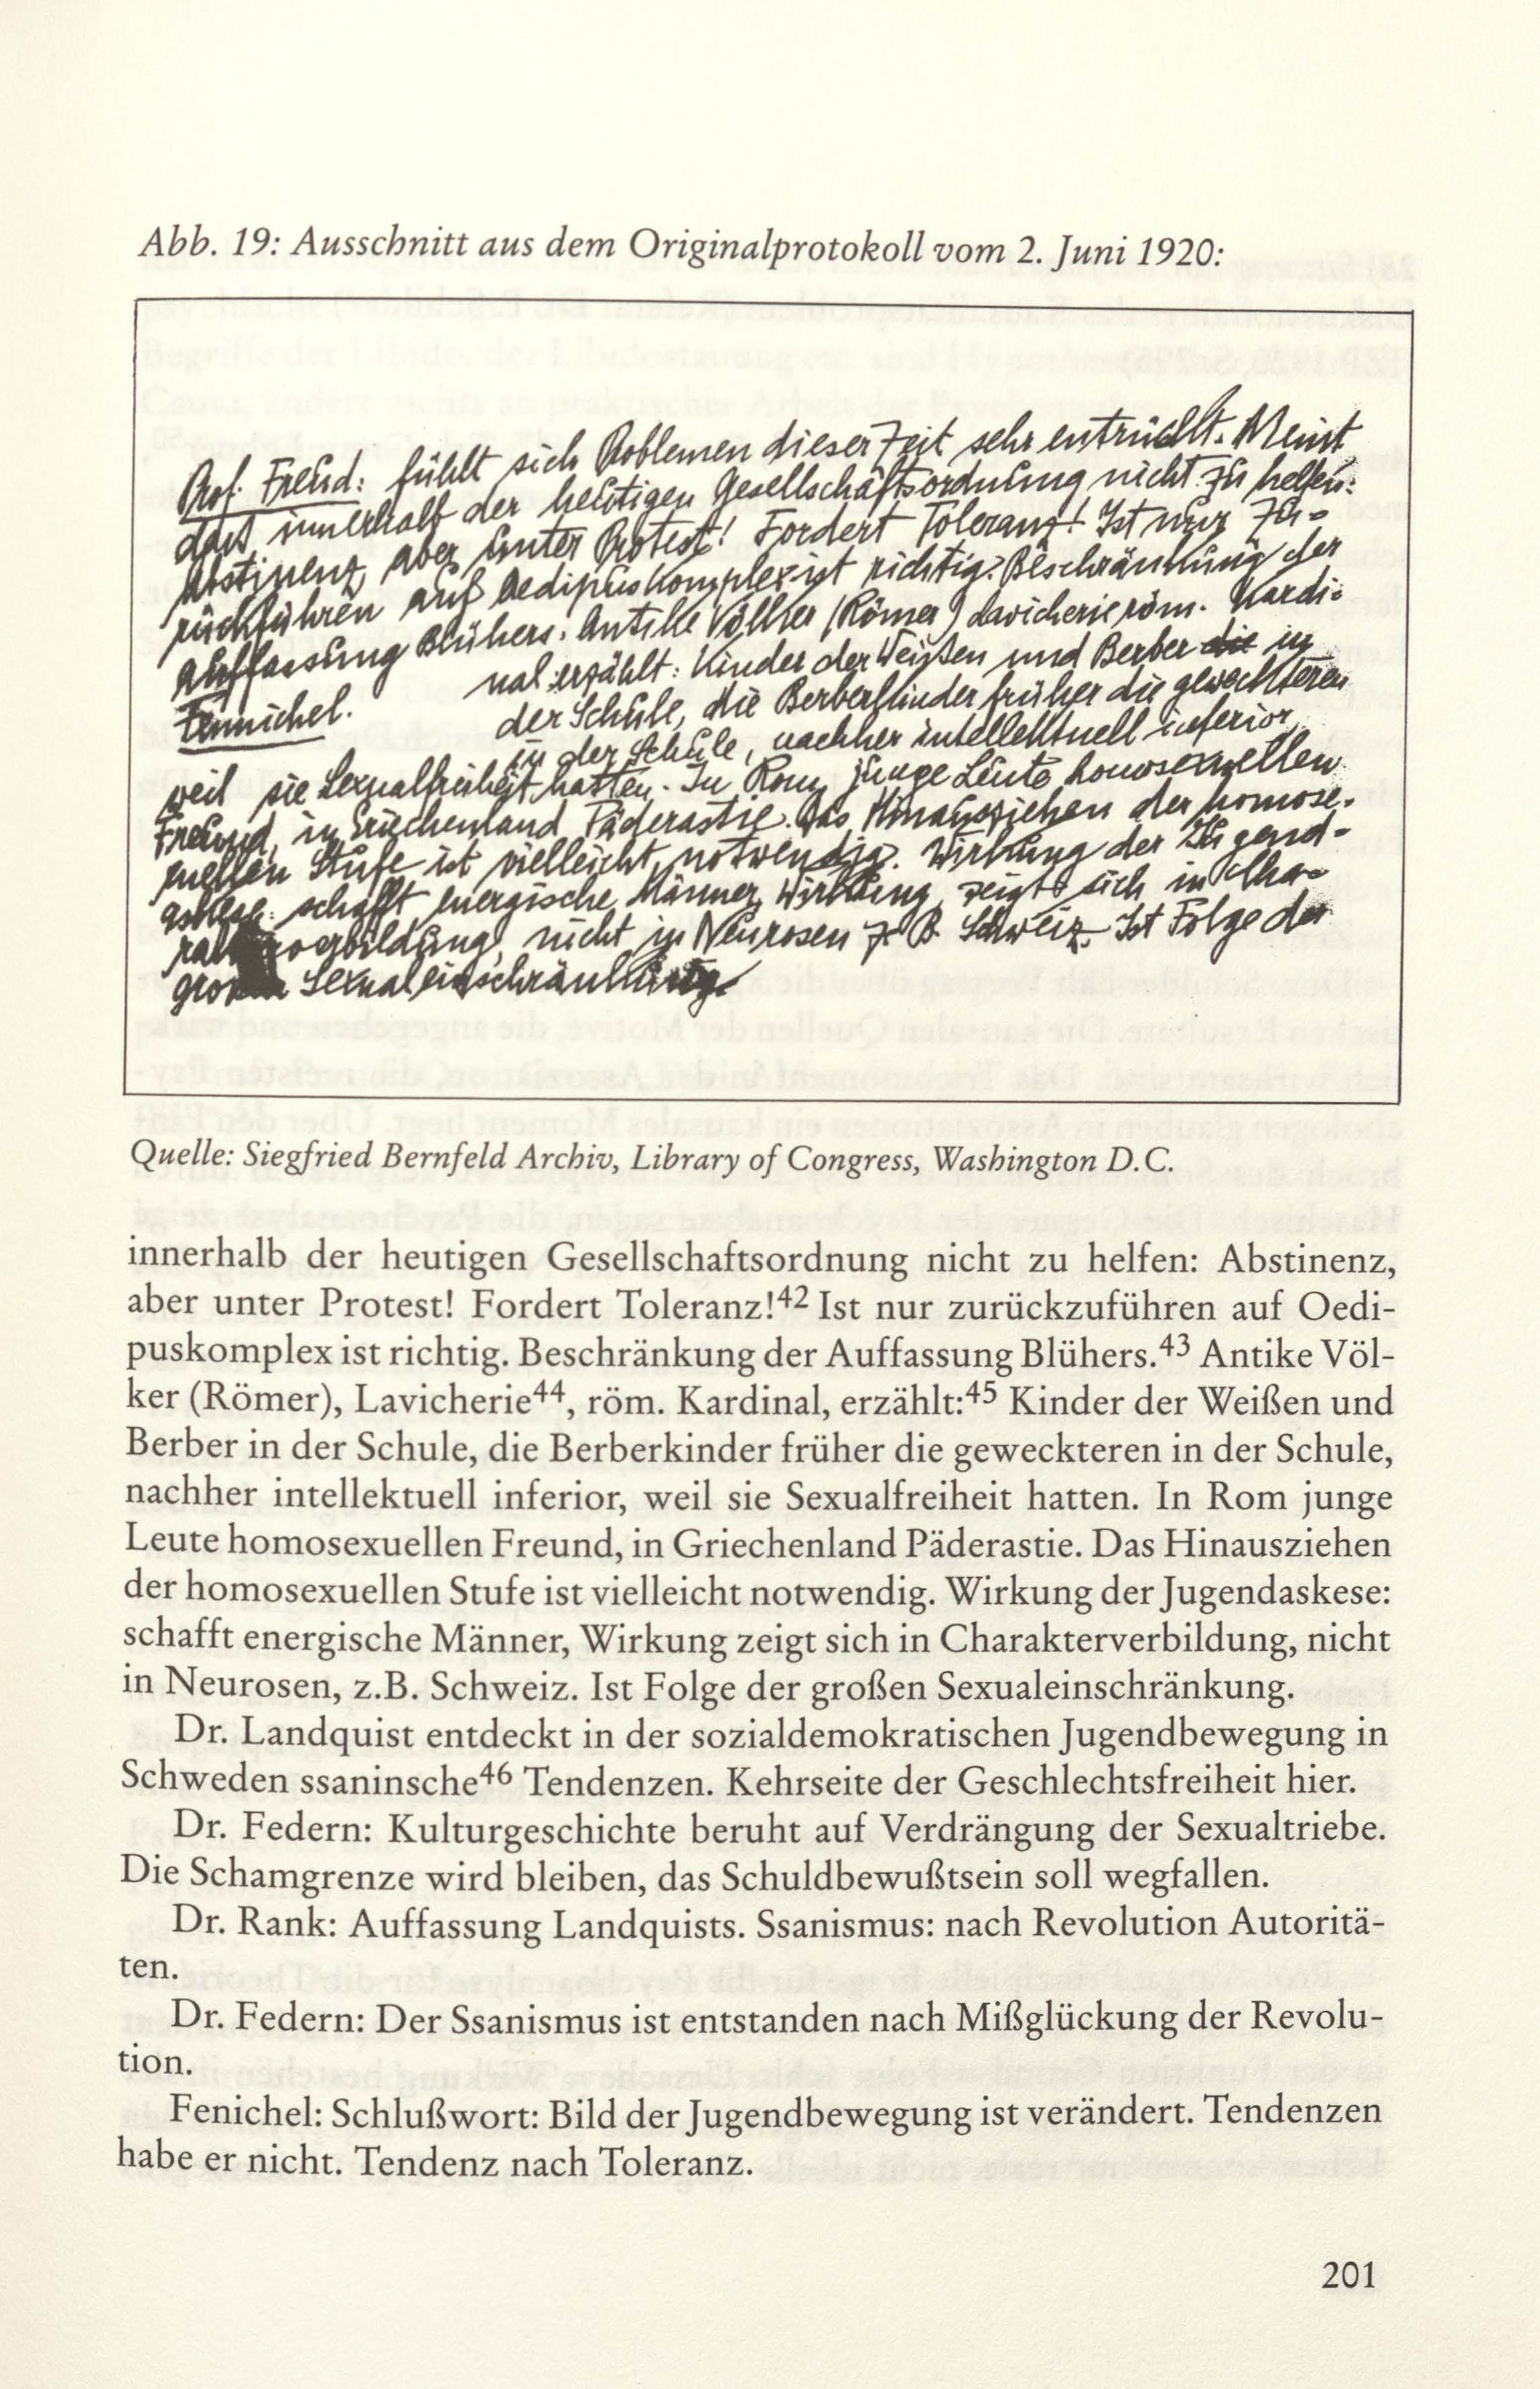 Abb. 19: Ausschnitt aus dem Originalprotokoll vom 2. Juni 1920:
Prof. Freud: fühlt sich Problemen dieser Zeit sehr entrückt. Meint
dass innerhalb der heutigen Gesellschaftsordnung nicht zu helfen:
Abstinenz, aber unter Protest! Fordert Toleranz! Ist nur zu-
rückführen auf Oedipuskomplex ist richtig. Beschränkung der
Auffassung Blühers. Antike Völker (Römer) Lavicherie röm. Kardi-
nal erzählt: Kinder der Weißen und Berber die in
Fennichel. der Schule, die Berberkinder früher die geweckteren
in der Schule, nachher intellektuell inferior,
weil sie Sexualfreiheit hatten. In Rom junge Leute homosexuellen
Freund, in Griechenland Päderastie. Das Hinausziehen der homose-
xuellen Stufe ist vielleicht notwendig. Wirkung der Jugend-
askese: schafft energische Männer, Wirkung zeigt sich in Cha-
verbildung, nicht in Neurosen z. B. Schweiz. Ist Folge der
großen Sexualeinschränkung.
Quelle: Siegfried Bernfeld Archiv, Library of Congress, Washington D.C.
innerhalb der heutigen Gesellschaftsordnung nicht zu helfen: Abstinenz,
aber unter Protest! Fordert Toleranz!42 Ist nur zurückzuführen auf Oedi-
puskomplex ist richtig. Beschränkung der Auffassung Blühers.43 Antike Völ-
ker (Römer), Lavicherie44, röm. Kardinal, erzählt:45 Kinder der Weißen und
Berber in der Schule, die Berberkinder früher die geweckteren in der Schule,
nachher intellektuell inferior, weil sie Sexualfreiheit hatten. In Rom junge
Leute homosexuellen Freund, in Griechenland Päderastie. Das Hinausziehen
der homosexuellen Stufe ist vielleicht notwendig. Wirkung der Jugendaskese:
schafft energische Männer, Wirkung zeigt sich in Charakterverbildung, nicht
in Neurosen, z.B. Schweiz. Ist Folge der großen Sexualeinschränkung.
Dr. Landquist entdeckt in der sozialdemokratischen Jugendbewegung in
Schweden ssaninsche46 Tendenzen. Kehrseite der Geschlechtsfreiheit hier.
Dr. Federn: Kulturgeschichte beruht auf Verdrängung der Sexualtriebe.
Die Schamgrenze wird bleiben, das Schuldbewußtsein soll wegfallen.
Dr. Rank: Auffassung Landquists. Ssanismus: nach Revolution Autoritä-
ten.
Dr. Federn: Der Ssanismus ist entstanden nach Mißglückung der Revolu-
tion.
Fenichel: Schlußwort: Bild der Jugendbewegung ist verändert. Tendenzen
habe er nicht. Tendenz nach Toleranz.
201